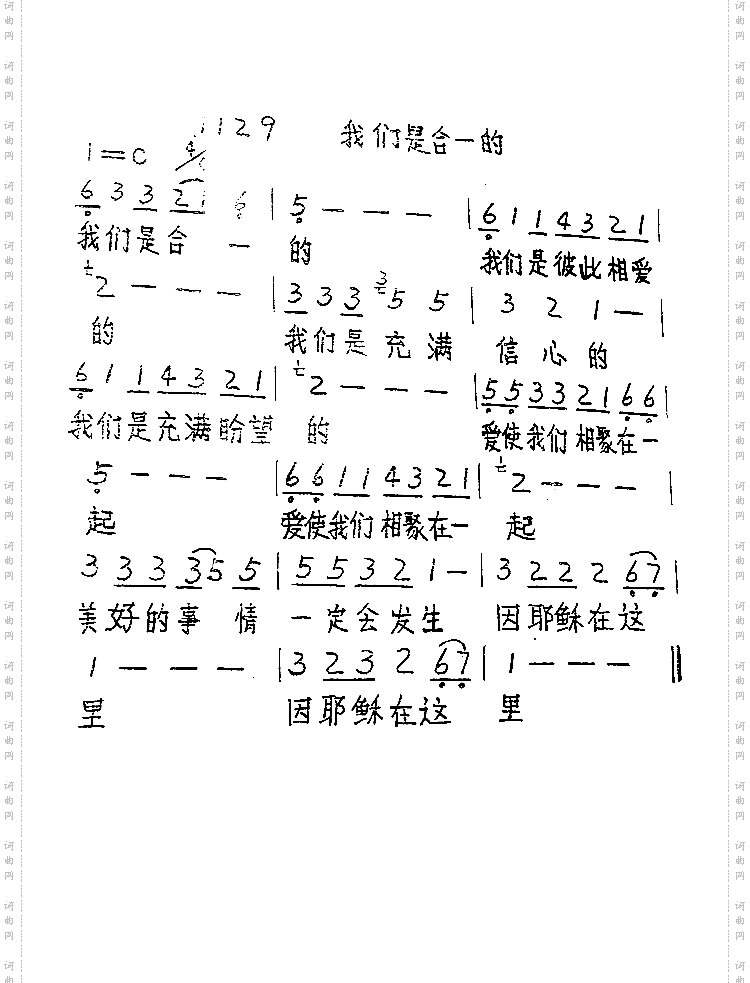 1129 我们是合一的
1=C 4/4
6 3 3 2 1 6 | 5 — — — | 6 1 1 4 3 2 1 |
我们是合一的 我们是彼此相爱
2 — — — | 3 3 3 5 5 | 3 2 1 — |
的 我们是充满信心的
6 1 1 4 3 2 1 | 2 — — — | 5 5 3 3 2 1 6 6 |
我们是充满盼望的 爱使我们相聚在一
5 — — — | 6 6 1 1 4 3 2 1 | 2 — — — |
起 爱使我们相聚在一起
3 3 3 3 5 5 | 5 5 3 2 1 — | 3 2 2 2 6 7 |
美好的事情一定会发生 因耶稣在这
1 — — — | 3 2 3 2 6 7 | 1 — — — ‖
里 因耶稣在这里
词曲网